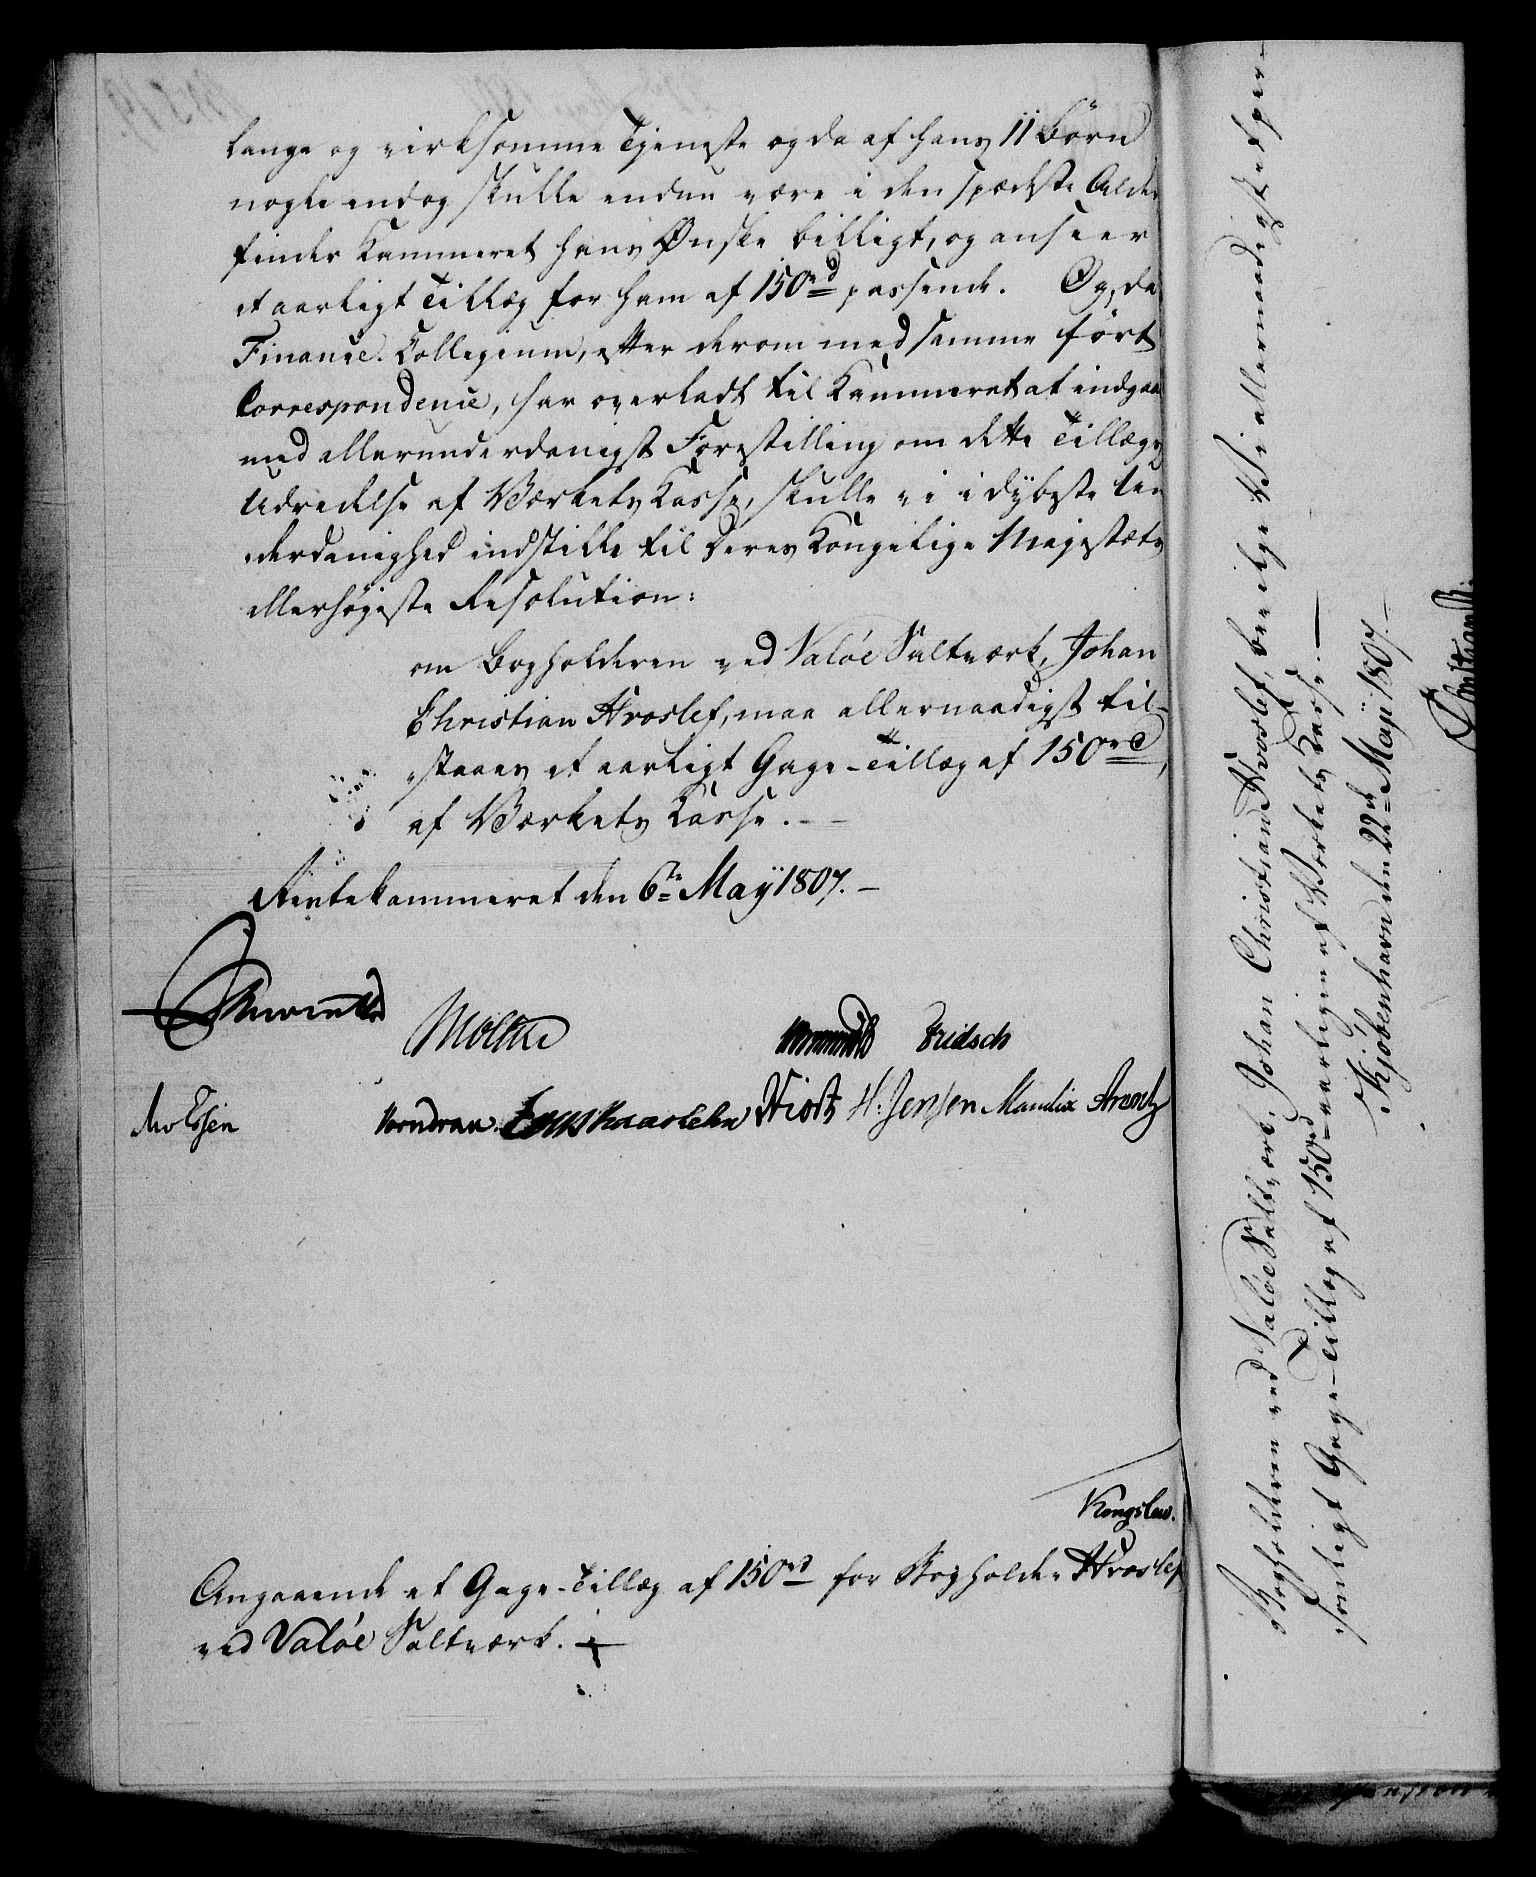 lange og virksomme Tjeneste og da af hans 11 Børn
nogle endog skulle endnu være i den spædeste Alder
finder Kammeret hans Ønske billigt, og anseer
et aarligt Tillæg for ham af 150rd passende. Og, da
Finance-Collegium, efter derom med samme ført
Correspondence, har overladt til Kammeret at indgaae
med allerunderdanigst Forestilling om dette Tillægs
Udredelse af Værkets Kasse, skulle vi i dybeste Un
derdanighed indstille til Deres Kongelige Majestæts
allerhøieste Resolution:
om Bogholderen ved Valøe Saltværk, Johan
Christian Hroslef, maa allernaadigst til-
staaes et aarligt Gage-Tillæg af 150rd,
af Værkets Kasse.
Rentekammeret den 6te May 1807.
Moltke
Fridsch
Mv Essen Vorndran. Hiort H: Jensen Mandix Arentz
Kongslew.
Angaaende et Gage-Tillæg af 150rd for Bogholder Hroslef
ved Valøe Saltværk.
Bogholderen ved Valøe Saltværk, Johan Christian Hroslef, bevilge Vi allernaadigst et per-
sonligt Gage-Tillæg af 150rd aarligen af Værkets Kasse.
Kjøbenhavn den 22de Maji 1807.